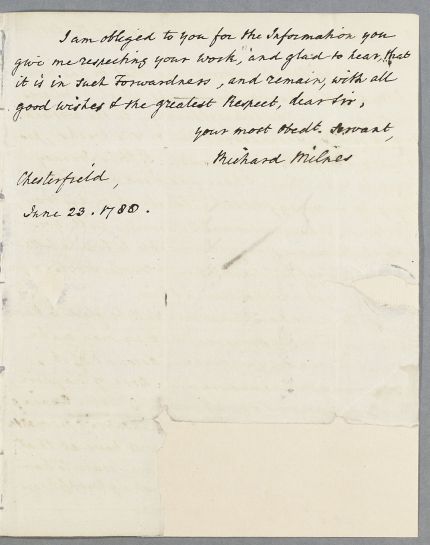 I am obliged to you for the Information you
give me respecting your work, and glad to hear, that
it is in such Forwardness, and remain, with all
good wishes & the greatest Respect, dear Sir,
your most Obedt. Servant,
Richard Milnes
Chesterfield,
June 23. 1788.